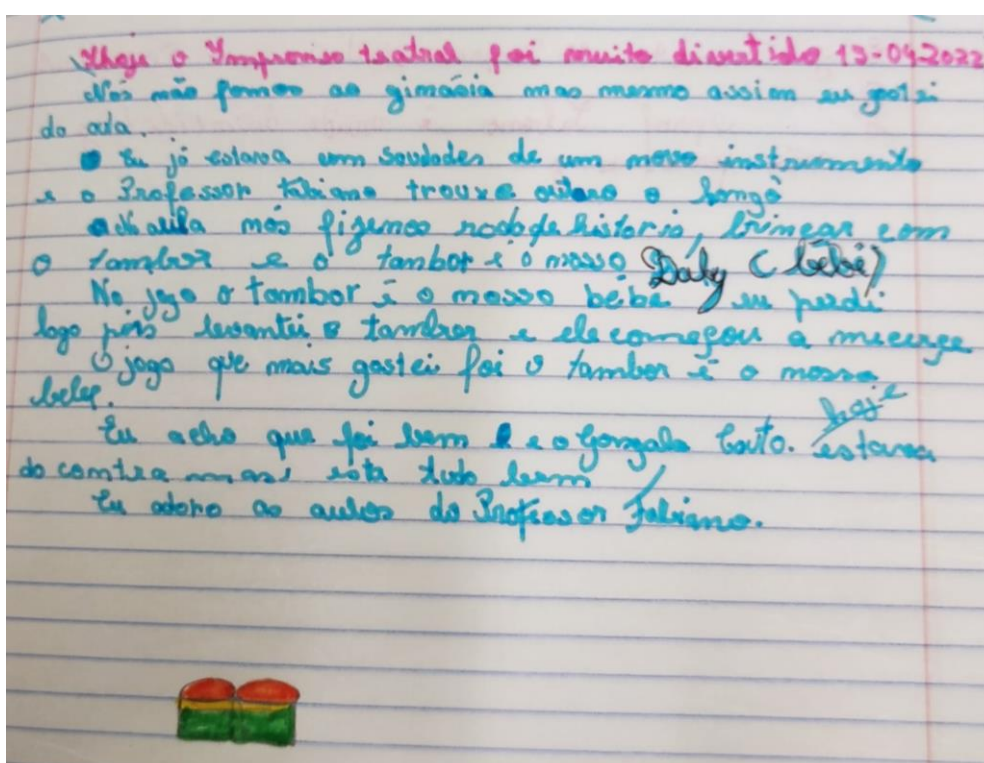 Hoje o Improviso teatral foi muito divertido 13-04-2022
Nós não fomos ao gimásia mas mesmo assim eu gostei
da aula.
Eu já estava com saudades de um novo instrumento
e o Professor Fabiano trouxe outaro o bongô
Na aula nós fizemos roda de historia, brincar com
o tambor e o tambor é o nosso Baby (bébé)
No jogo o tambor é o nosso bébé eu perdi
logo pois levantei o tambor e ele começou a
O jogo que mais gostei foi o tambor é o nosso
bebe.
Eu acho que foi bem e o Gonçalo Couto. hoje estava
do contra mas esta tudo bem
Eu adoro as aulas do Professor Fabiano.